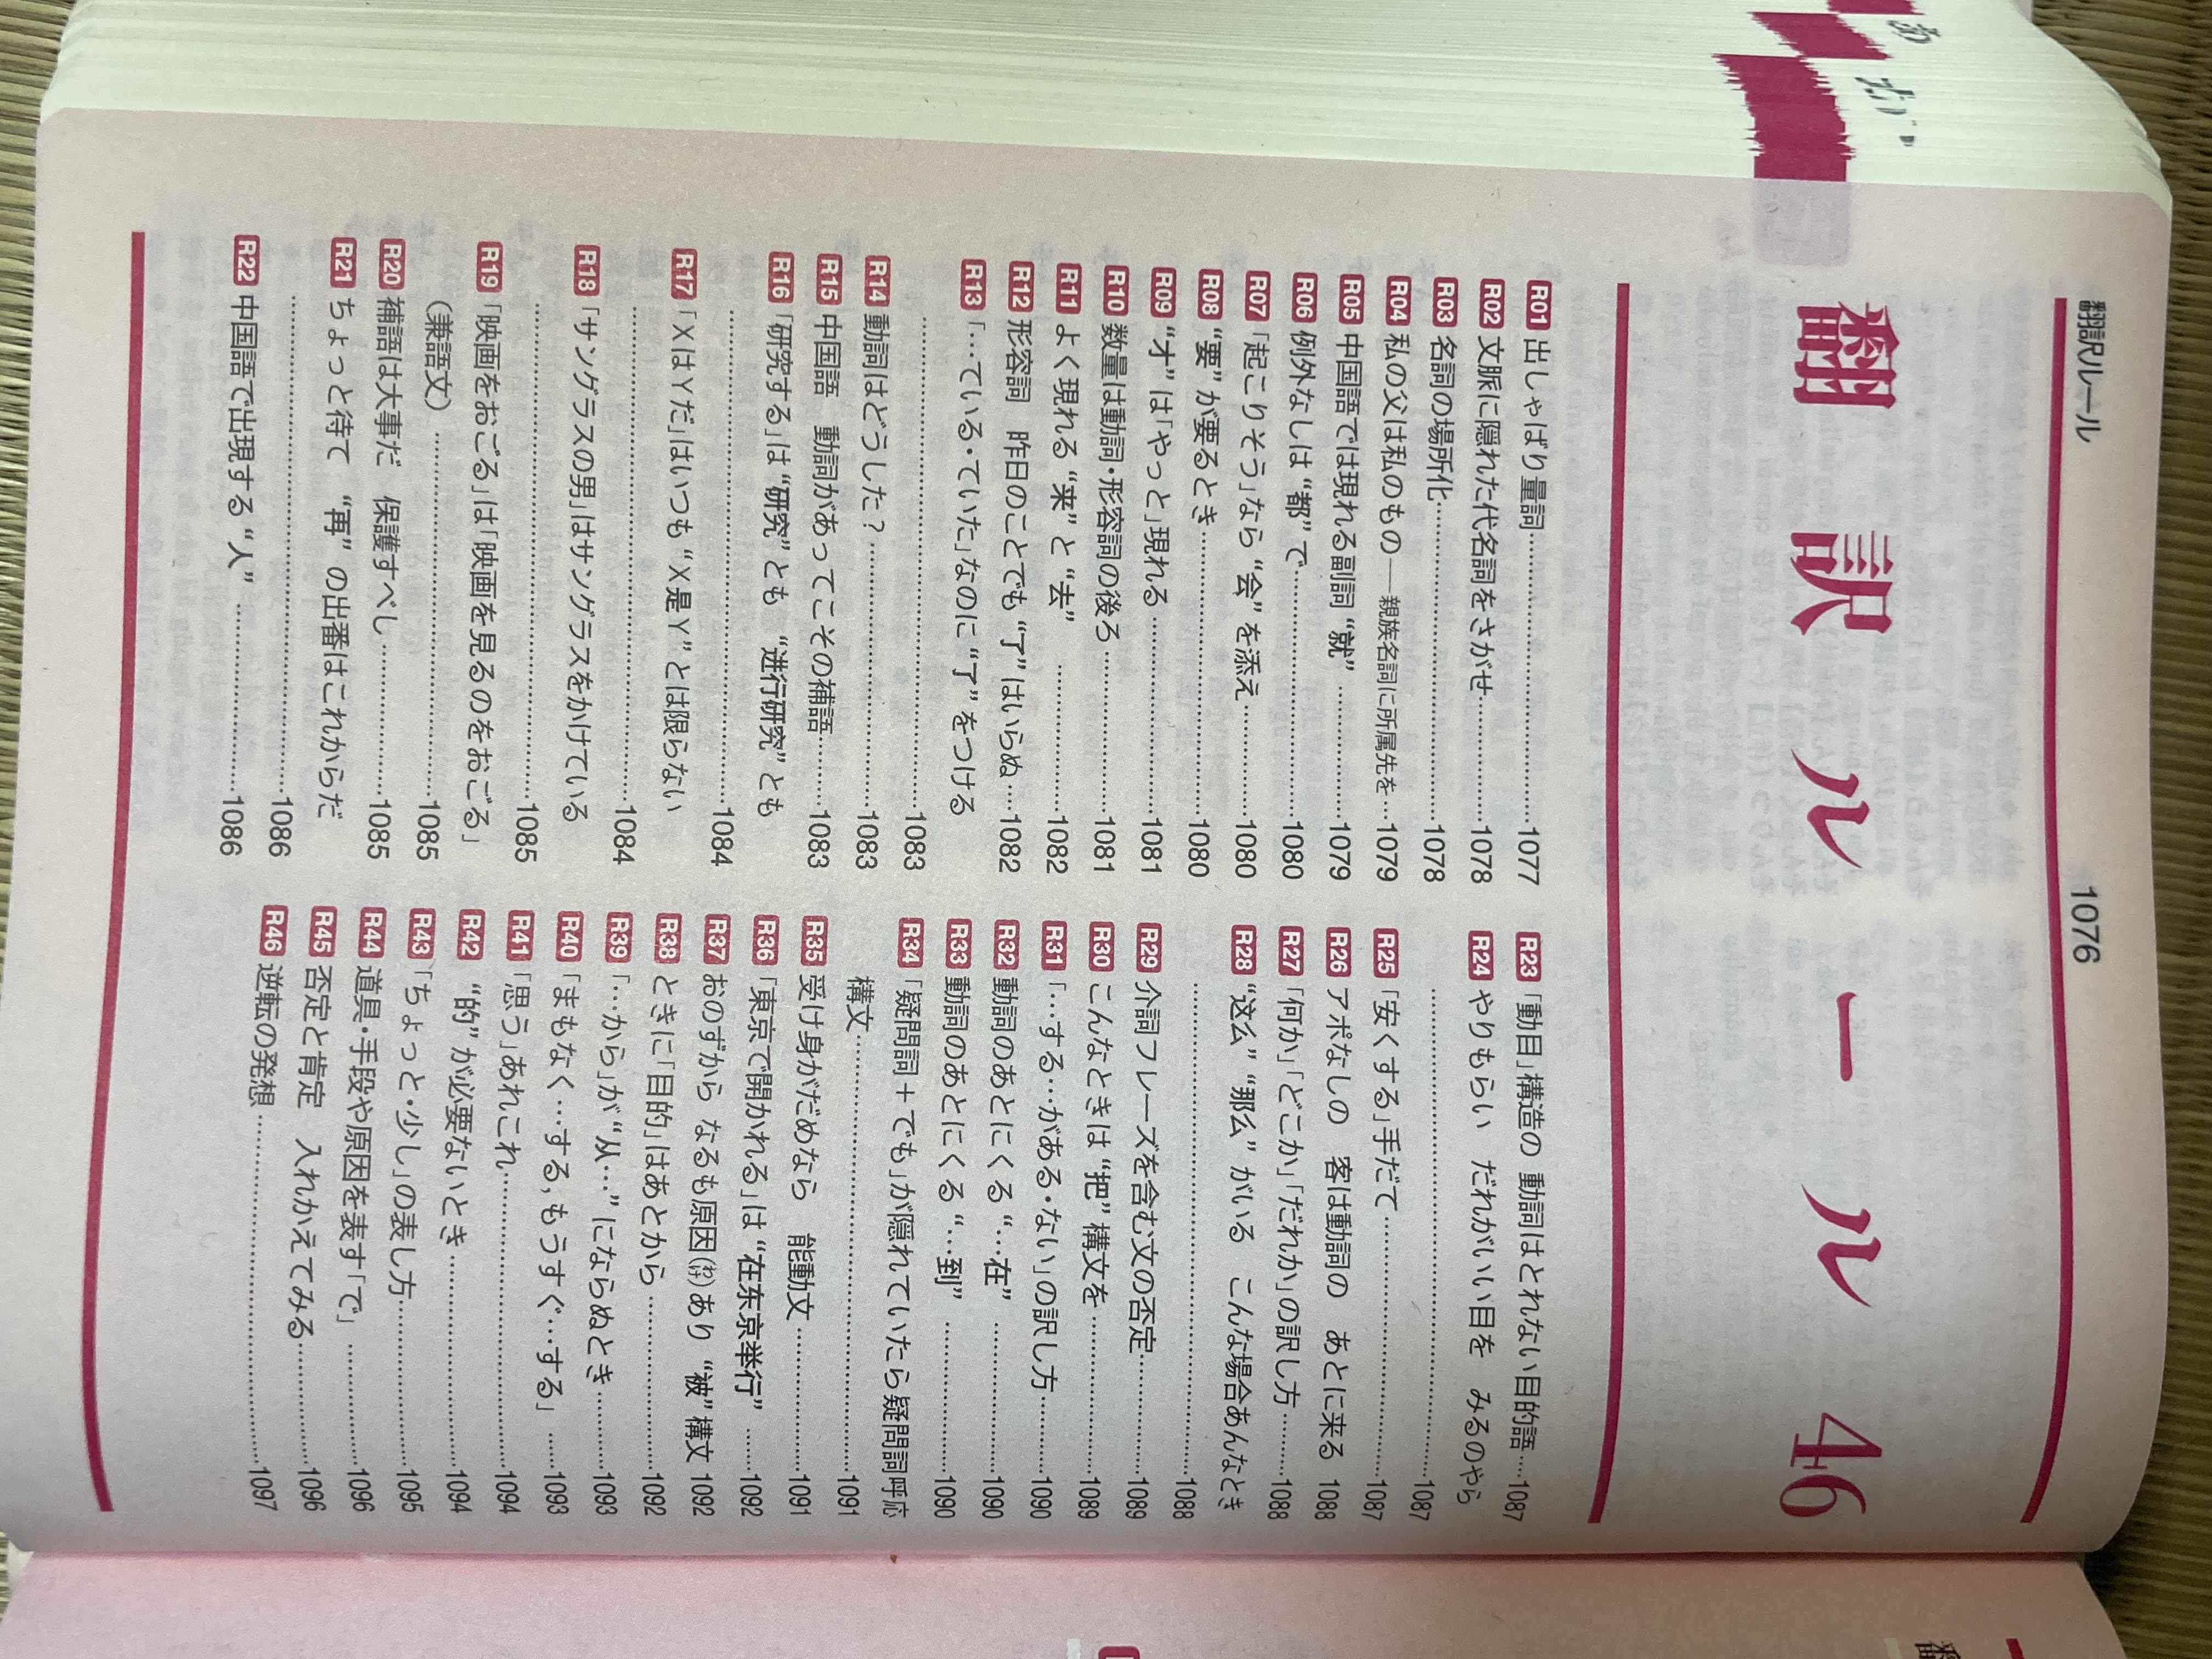 翻訳ルール 1076
翻訳ルール 46
R01 出しゃばり量詞……1077
R02 文脈に隠れた代名詞をさがせ……1078
R03 名詞の場所化……1078
R04 私の父は私のもの──親族名詞に所属先を…1079
R05 中国語では現れる副詞“就”……1079
R06 例外なしは“都”で……1080
R07 「起こりそう」なら“会”を添え……1080
R08 “要”が要るとき……1080
R09 “才”は「やっと」現れる……1081
R10 数量は動詞・形容詞の後ろ……1081
R11 よく現れる“来”と“去”……1082
R12 形容詞 昨日のことでも“了”はいらぬ…1082
R13 「…ている・ていた」なのに“了”をつける
……1083
R14 動詞はどうした？……1083
R15 中国語 動詞があってこその補語……1083
R16 「研究する」は“研究”とも“进行研究”とも
……1084
R17 「XはYだ」はいつも“X是Y”とは限らない
……1084
R18 「サングラスの男」はサングラスをかけている
……1085
R19 「映画をおごる」は「映画を見るのをおごる」
（兼語文）……1085
R20 補語は大事だ 保護すべし……1085
R21 ちょっと待て “再”の出番はこれからだ
……1086
R22 中国語で出現する“人”……1086
R23 「動目」構造の 動詞はとれない目的語…1087
R24 やりもらい だれがいい目を みるのやら
……1087
R25 「安くする」手だて……1087
R26 アポなしの 客は動詞の あとに来る 1088
R27 「何か」「どこか」「だれか」の訳し方……1088
R28 “这么”“那么”がいる こんな場合あんなとき
……1088
R29 介詞フレーズを含む文の否定……1089
R30 こんなときは“把”構文を……1089
R31 「…する…がある・ない」の訳し方……1090
R32 動詞のあとにくる“…在”……1090
R33 動詞のあとにくる“…到”……1090
R34 「疑問詞＋でも」が隠れていたら疑問詞呼応
構文……1091
R35 受け身がだめなら 能動文……1091
R36 「東京で開かれる」は“在东京举行”……1092
R37 おのずから なるも原因(わけ)あり “被”構文 1092
R38 ときに「目的」はあとから……1092
R39 「…から」が“从…”にならぬとき……1093
R40 「まもなく…する,もうすぐ…する」……1093
R41 「思う」あれこれ……1094
R42 “的”が必要ないとき……1094
R43 「ちょっと・少し」の表し方……1095
R44 道具・手段や原因を表す「で」……1096
R45 否定と肯定 入れかえてみる……1096
R46 逆転の発想……1097